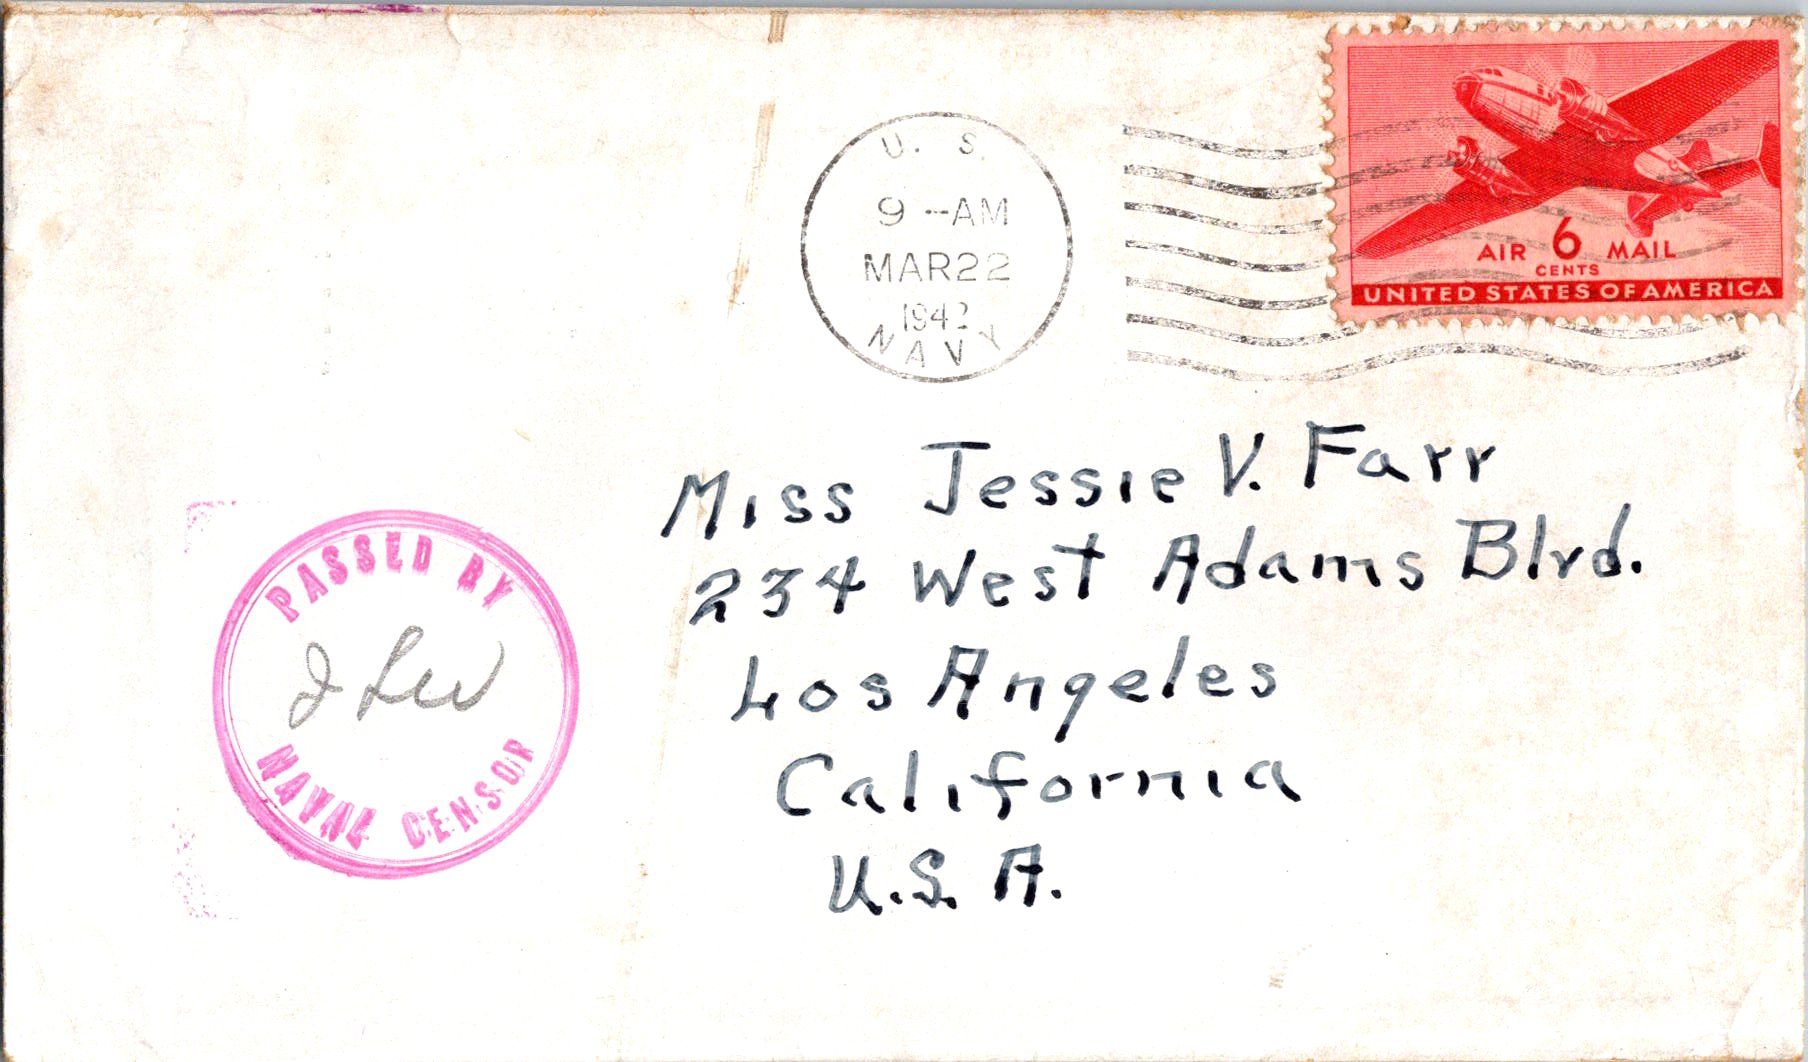 U. S.
9 -AM
MAR 22
1942
NAVY
AIR 6 MAIL
CENTS
UNITED STATES OF AMERICA
Miss Jessie V. Farr
234 West Adams Blvd.
Los Angeles
California
U.S. A.
PASSED BY
NAVAL CENSOR